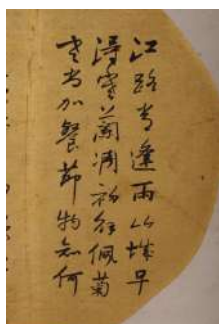 江路常逢雨山城早
得寒蘭凋初解佩菊
老尚加餐節物知何